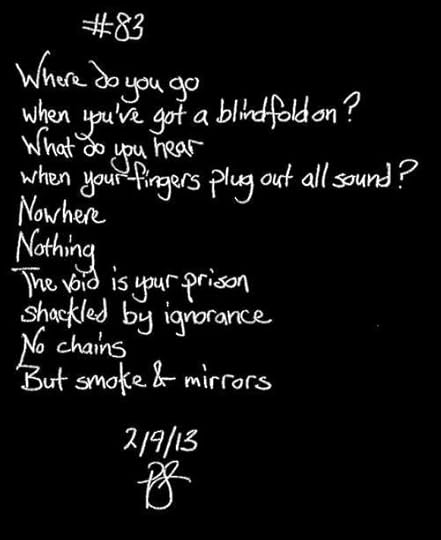 #83
Where do you go
when you've got a blindfold on?
What do you hear
when your fingers plug out all sound?
Nowhere
Nothing
The void is your prison
shackled by ignorance
No chains
But smoke & mirrors
2/9/13